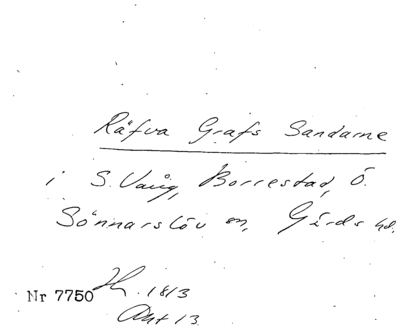 Räfva Grafs Sandarne
i S. Vång, Borrestad, Ö.
Sönnarslöv sn, Gärds hd.
Nr 7750 1813
Akt 13